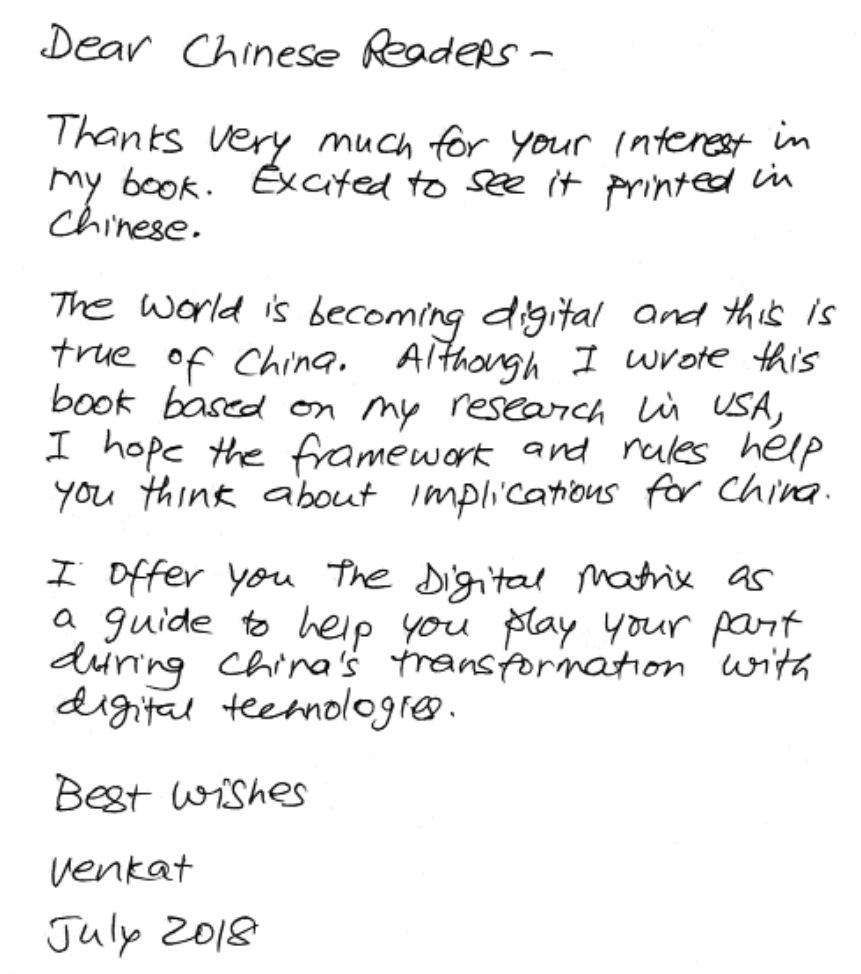 Dear Chinese Readers -
Thanks very much for your interest in
my book. Excited to see it printed in
Chinese.
The world is becoming digital and this is
true of China. Although I wrote this
book based on my research in USA,
I hope the framework and rules help
you think about implications for China.
I offer you The Digital Matrix as
a guide to help you play your part
during China's transformation with
digital technologies.
Best wishes
Venkat
July 2018